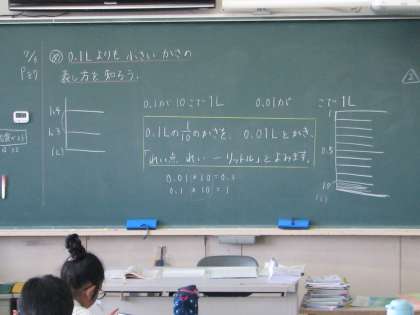 0.1Lよりも 小さい かさの
表し方を 知ろう。
0.1が10こで 1L
0.01が こで 1L
0.1Lの1/10のかさを、0.01Lとかき、
「れい点 れい一リットル」とよみます。
0.01×10=0.1
0.1×10=1
1.4
1.3
(L)
1
0.5
(L)